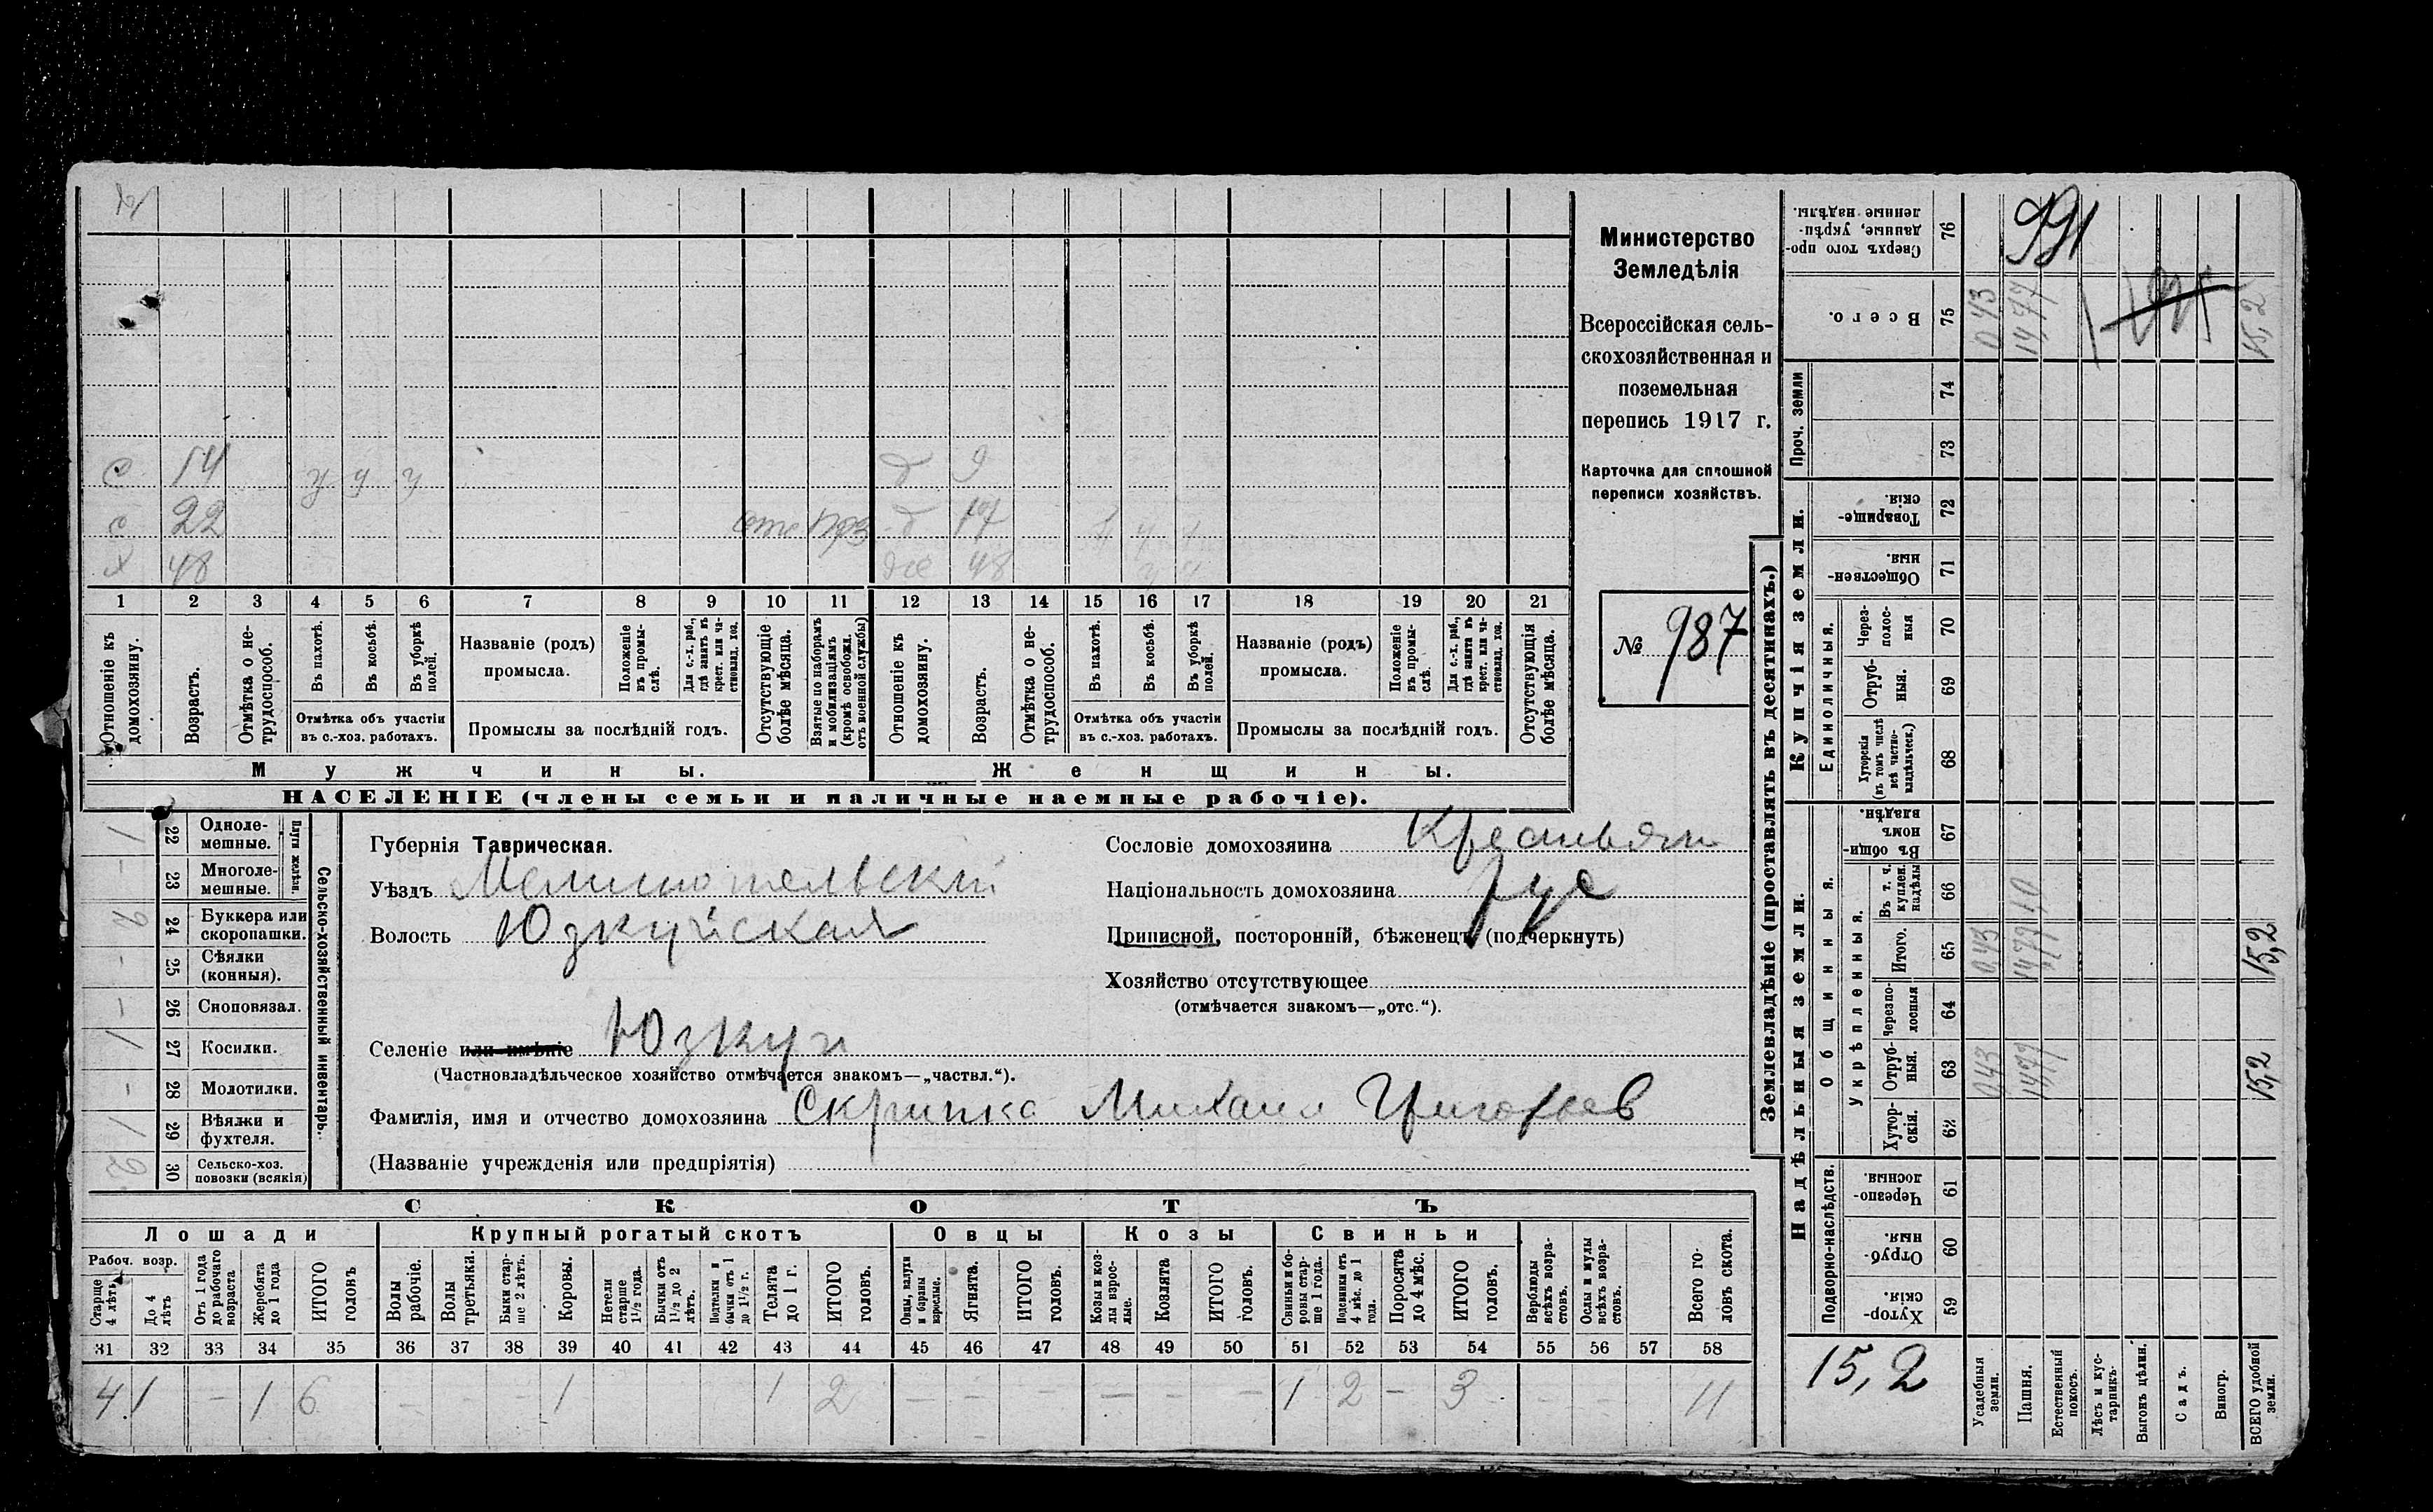 Министерство
Земледѣлія
Всероссійская сель-
скохозяйственная и
поземельная
перепись 1917 г.
Карточка для сплошной
переписи хозяйствъ.
№ 987
с 14 у у у д 9
с 22 д 17
х 48 48
1 2 3 4 5 6 7 8 9 10 11 12 13 14 15 16 17 18 19 20 21
Отношеніе къ домохозяину.
Возрастъ.
Отмѣтка о не-трудоспособ.
Въ пахотѣ.
Въ косьбѣ.
Въ уборкѣ полей.
Отмѣтка объ участіи
въ с.-хоз. работахъ.
Названіе (родъ)
промысла.
Положеніе въ промы-слѣ.
Для с.-х. раб., гдѣ занятъ въ крест. или ча-стновлад. хоз.
Промыслы за послѣдній годъ.
Отсутствующіе болѣе мѣсяца.
Взятые по наборамъ и мобилизаціямъ (кромѣ освобожд. отъ военной службы)
Отношеніе къ домохозяину.
Возрастъ.
Отмѣтка о не-трудоспособ.
Въ пахотѣ.
Въ косьбѣ.
Въ уборкѣ полей.
Отмѣтка объ участіи
въ с.-хоз. работахъ.
Названіе (родъ)
промысла.
Положеніе въ промы-слѣ.
Для с.-х. раб., гдѣ занята въ крест. или ча-стновлад. хоз.
Промыслы за послѣдній годъ.
Отсутствующія болѣе мѣсяца.
Мужчины.
Женщины.
НАСЕЛЕНІЕ (члены семьи и наличные наемные рабочіе).
Сельско-хозяйственный инвентарь.
Плуги желѣзн.
1 22 Одноле-мешные.
– 23 Многоле-мешные.
24 Буккера или скоропашки.
– 25 Сѣялки (конныя).
– 26 Сноповязал.
1 27 Косилки.
– 28 Молотилки.
1 29 Вѣялки и фухтеля.
2 30 Сельско-хоз. повозки (всякія)
Губернія Таврическая.
Уѣздъ Мелитопельскій
Волость Юзкуйская
Селеніе или имѣніе Юзкуи
(Частновладѣльческое хозяйство отмѣчается знакомъ—„частвл.“).
Фамилія, имя и отчество домохозяина Скрипка Михаил Григорьев
(Названіе учрежденія или предпріятія)
Сословіе домохозяина Крестьян
Національность домохозяина рус
Приписной, посторонній, бѣженецъ (подчеркнуть)
Хозяйство отсутствующее
(отмѣчается знакомъ—„отс.“).
СКОТЪ
Лошади
Крупный рогатый скотъ
Овцы
Козы
Свиньи
Рабоч. возр.
Старше 4 лѣтъ
До 4 лѣтъ
Отъ 1 года до рабочаго возраста
Жеребята до 1 года
ИТОГО головъ
Волы рабочіе.
Волы третьяки.
Быки стар-ше 2 лѣтъ.
Коровы.
Нетели старше 1½ года.
Бычки отъ 1½ до 2 лѣтъ.
Подтелки и бычки отъ 1 до 1½ г.
Телята до 1 г.
ИТОГО головъ.
Овцы, валухи и бараны взрослые.
Ягнята.
ИТОГО головъ.
Козы и коз-лы взрос-лые.
Козлята
ИТОГО головъ.
Свиньи и бо-ровы стар-ше 1 года.
Подсвинки отъ 4 мѣс. до 1 года.
Поросята до 4 мѣс.
ИТОГО головъ.
Верблюды всѣхъ возра-стовъ.
Ослы и мулы всѣхъ возра-стовъ.
Всего го-ловъ скота.
31 32 33 34 35 36 37 38 39 40 41 42 43 44 45 46 47 48 49 50 51 52 53 54 55 56 57 58
4 1 – 1 6 – – – 1 1 2 – – – – – – 1 2 – 3 – – 11
Землевладѣніе (проставлять въ десятинахъ.)
Надѣльныя земли.
Купчія земли.
Проч. земли
Подворно-наслѣдств.
Общинныя.
Укрѣпленныя.
Единоличныя.
Сверхъ того про-данные, укрѣп-ленные надѣлы. 76
Всего. 75 0,43 14,77 15,2
74
73
Товарище-скія. 72
Обществен-ныя 71
Через-полос-ныя 70
Отруб-ныя. 69
Хуторскія (въ томъ числѣ всѣ частно-владѣльческ.) 68
Въ общин-номъ владѣн. 67
Въ т. ч. куплен. надѣлы 66
Итого. 65 0,43 14,77 15,2
Черезпо-лосныя 64
Отруб-ныя. 63 0,43 14,77 15,2
Хутор-скія. 62
Черезпо-лосныя. 61
Отруб-ныя. 60
Хутор-скія. 59
991
15,2
Усадебныя земли.
Пашня.
Естественный покосъ.
Лѣсъ и кус-тарникъ.
Выгонъ цѣлин.
Садъ.
Виногр.
ВСЕГО удобной земли.